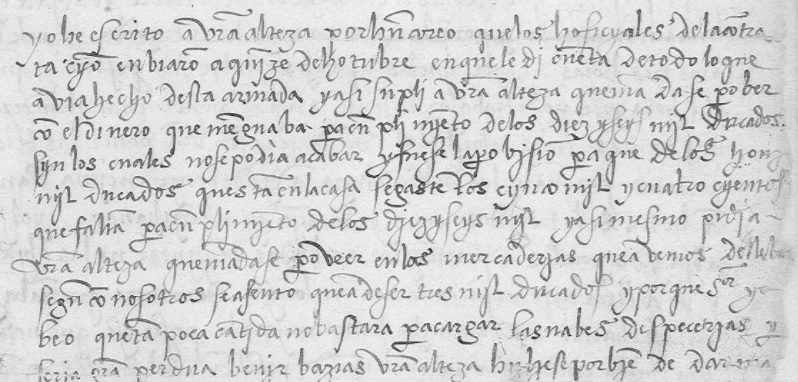 yo he escrito a vrã alteza por hũ careo que los hoficyales de la contra
tacyõ enbiarõ a quĩze de hotubre en que le di cuẽta de todo lo que
avia hecho desta armada y asi supli a vrã alteza que mãdase prober
cõ el dinero que menguaba pa cũplimyẽto de los diez y seys myl ducados
syn los cuales no se podia acabar y fuese la probisiõ pa que de los honze
myl ducados questã en la casa se gastẽ los cynco myl y cuatro cyentos
que faltã pa cũplimyẽto de los diez y seys myl y asi mesmo pidia
vrã alteza que mãdase proveer en las mercaderias que avemos de llebar
segũ cõ nosotros se asento que a de ser tres myl ducados y porque sor yo
beo que tã poca cãtida no bastara pa cargar las nabes despecerias y
seria grã perdida benir bazias vrã alteza hubiese por bie de dar